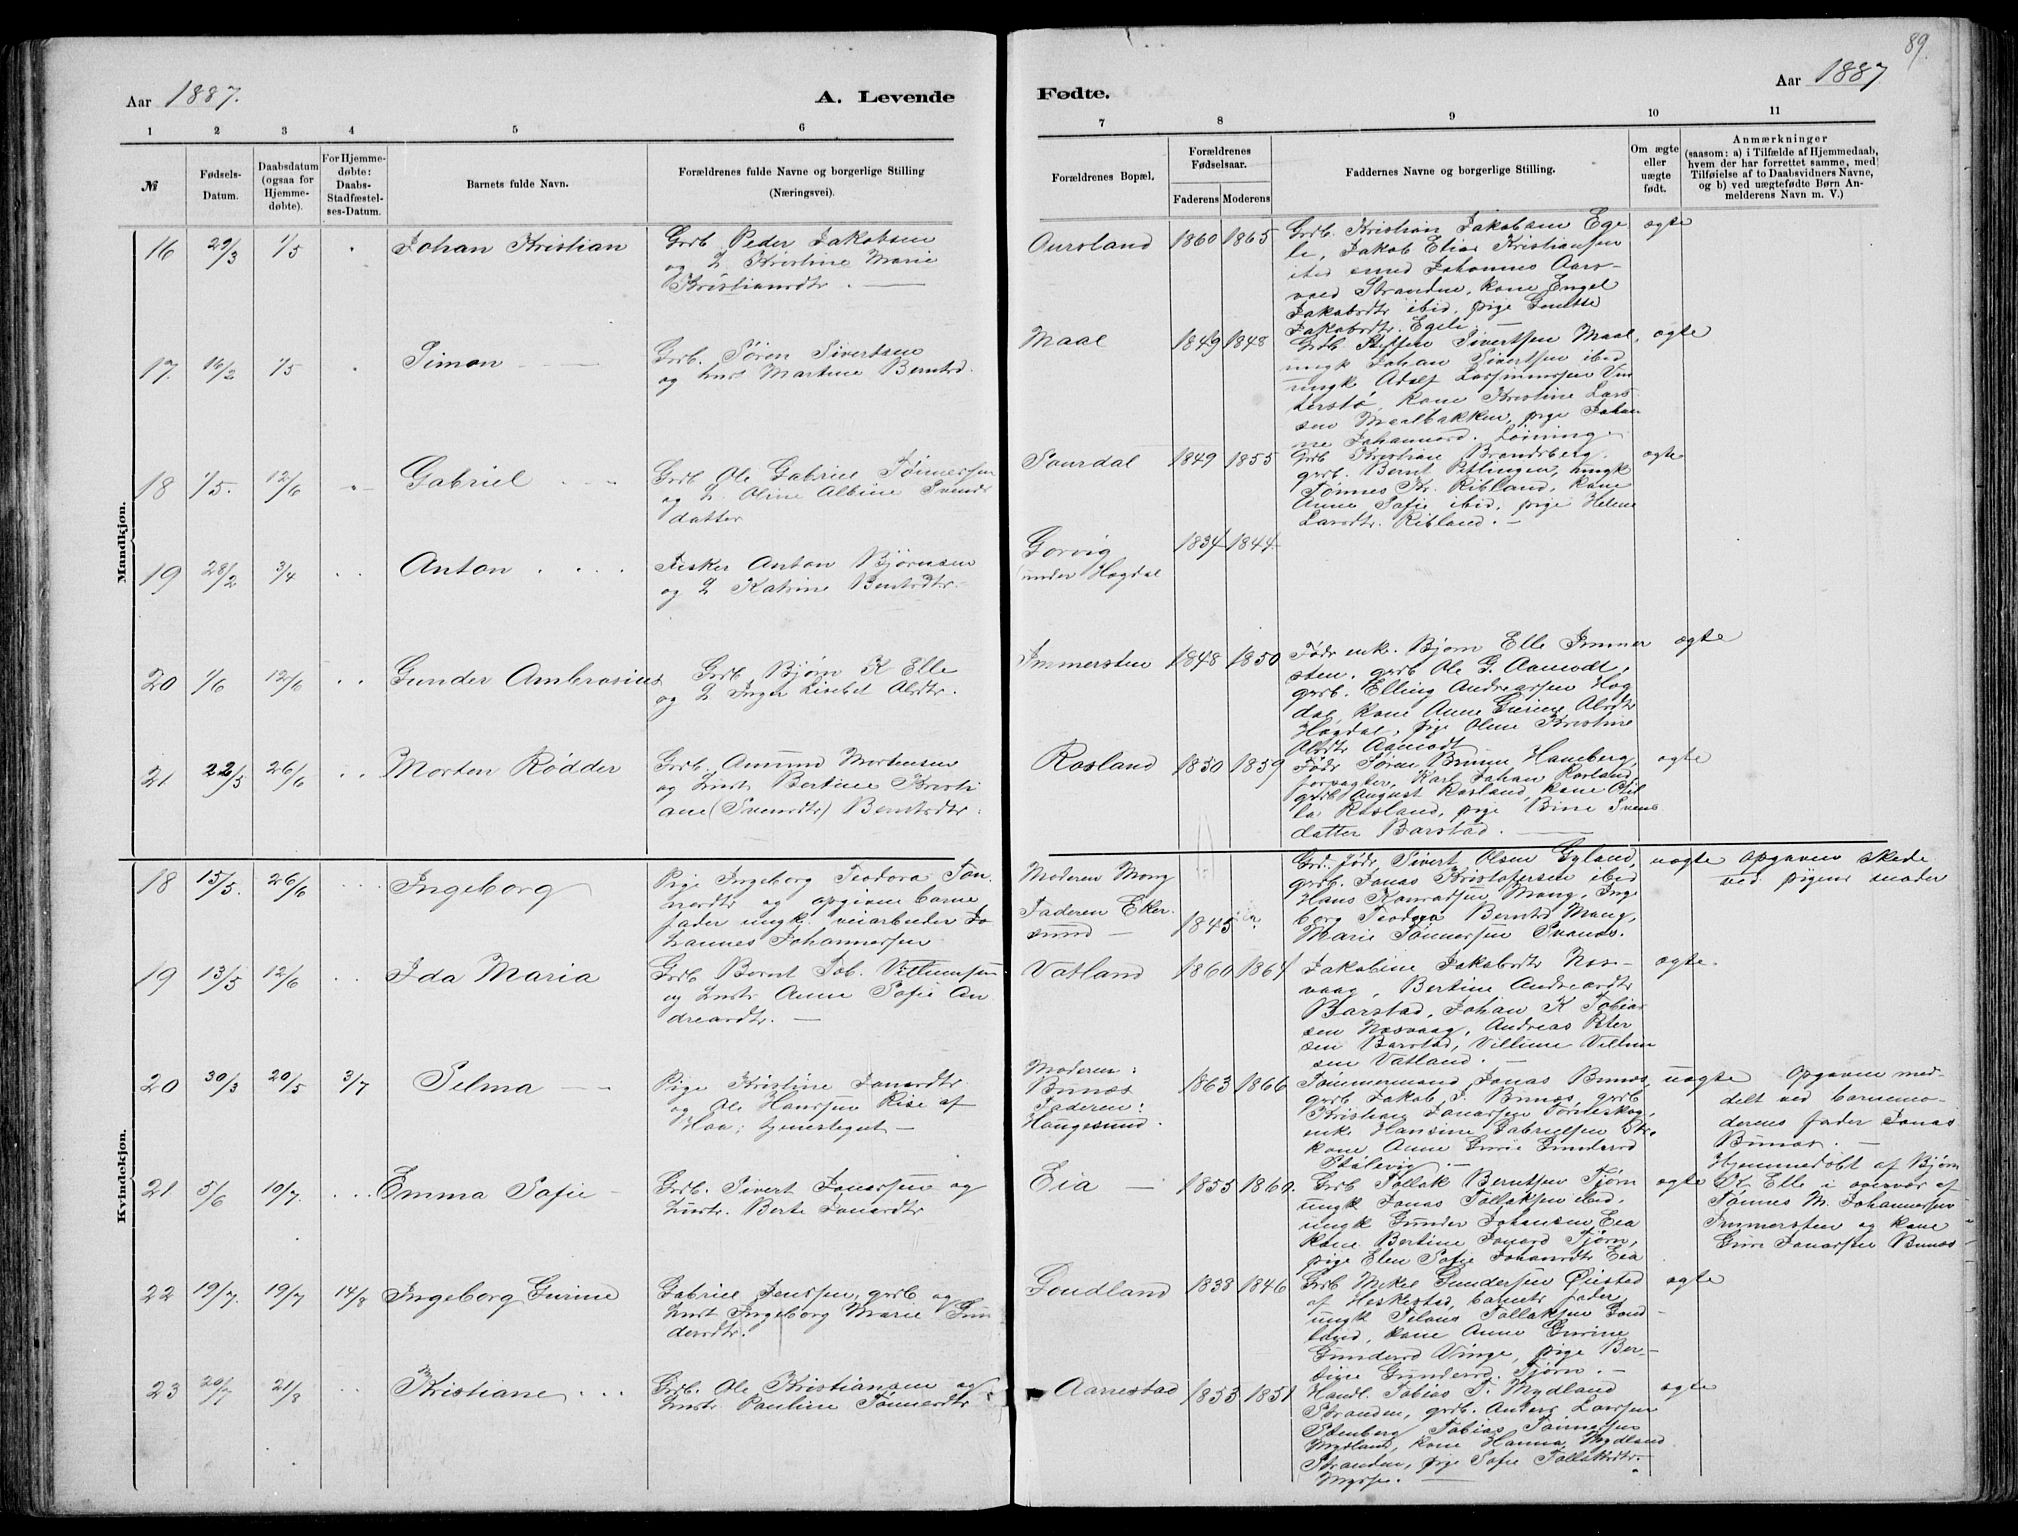 89.
Aar 1887.
A. Levende
Fødte.
Aar 1887
1 2 3 4 5 6
7 8 9 10 11
№
Fødsels-
Datum.
Daabsdatum
(ogsaa for
Hjemme-
døbte).
For Hjemme-
døbte:
Daabs-
Stadfæstel-
ses-Datum.
Barnets fulde Navn.
Forældrenes fulde Navne og borgerlige Stilling
(Næringsvei).
Forældrenes Bopæl.
Forældrenes
Fødselsaar.
Faderens Moderens
Faddernes Navne og borgerlige Stilling.
Om ægte
eller
uægte
født.
Anmærkninger
(saasom: a) i Tilfælde af Hjemmedaab,
hvem der har forrettet samme, med
Tilføielse af to Daabsvidners Navne,
og b) ved uægtefødte Børn An-
melderens Navn m. V.)
Mandkjøn.
16 29/3 1/5 Johan Kristian
Grdb. Peder Jakobsen
og H. Kristine Marie
Kristiansdtr.
Aursland 1860 1865
Grdb. Kristian Jakobsen Ege
li, Jakob Elias Kristiansen
ibid smed Johannes Aars-
vold Stranden, kone Engel
Jakobsdtr ibid, pige
Jakobsdtr. Egeli
ægte
17. 16/2 1/5 Simon
Grdb. Søren Sivertsen
og hust Martine Berntsd.
Maal 1849 1848
Grdb. Steffen Sivertsen Maal,
ungk Johan Sivertsen ibid
ungk Adolf
kone Kristine Lars
sen Maalbakken, pige Johan
ne Johannesd.
ægte
18 1/5. 12/6 Gabriel
Grdb Ole Gabriel Tønnessen
og H. Oline Albine Svends
datter
Sourdal 1849 1855
Grdb Kristian Brandsberg.
grdb. Bernt Petlingen, ungk
Tønnes Kr. Ribland, kone
Anne Sofie ibid, pige Helene
Larsdtr. Ribland.
ægte
19 28/2 3/4 Anton
Fisker Anton Bjørnsen
og H Katrine Berntsdtr.
Gorvig
under Hogdal
1834 1844
20 1/6 12/6 Gunder Ambrosius
Grdb Bjørn K Elle
og H Inger Lisebet Olsdtr.
Immersten 1848 1850
Føds enk. Bjørn Elle Immer
sten, grdb Ole G. Aamodt,
grdb. Elling Andreassen Hog
dal, kone Anne Gurine Olsdtr
Hogdal, pige Oline Kristine
Olsdtr Aamodt
ægte
21 22/5 26/6 Morten Rødder
Grdb. Amund Mortensen
og Hust Bertine Kristi
ane (Svendsdtr) Berntsdtr.
Rosland 1850 1859
Føds Søren Haneberg,
forpagter, Karl Johan Rosland,
grdb August Rosland, kone
Rosland, pige Bine Svens
datter Barstad.
ægte
Kvindekjøn.
18 15/5. 26/6 Ingeborg
Pige Ingeborg Teodora
og opgiven barne
fader ungk. veiarbeider Jo
hannes Johannessen
Moderen Mong
Faderen Eker
sund
1845
Sivert Olsen Gyland,
grdb. Jonas Kristofersen ibid
Hans Konradsen Mong, Inge
borg Teodora Berntsd Mong,
Marie Tønnessen Svanes.
uægte
Opgaven skede
ved pigens moder
19 13/5 12/6 Ida Maria
Grdb Bernt Tob. Villumsen
og Hust Anne Sofie An
dreasdtr.
Vatland 1860 1864
Jakobine Jakobsdtr Nos-
vaag, Bertine Andreasdtr
Barstad, Johan K Tobias
sen Nosvaag, Andreas Peter
sen Barstad, Villum
sen Vatland.
ægte
20 30/3 20/5 3/7 Selma
Pige Kristine Jonasdtr
og Ole Hanssen Rise af
Haa, tjenestegut
Moderen:
Bunæs
Faderen:
Haugesund.
1863 1866
Tømmermand Jonas Bunæs
grdb Jakob J. Bunæs, grdb
Kristian Jonassen
enke Hansine Gabrielsen
kone Anne Gurie Gundersd
uægte
Opgaven med-
delt ved barnemo-
derens fader Jonas
Bunæs.
21 5/6 10/7 Emma Sofie
Grdb. Sivert Jonassen og
Hust. Berte Jonasdtr
Eia 1855 1860
Grdb Tollak Berntsen Tjørn
ungk Jonas Tollaksen ibid.
ungk Gunder Johansen Eia
kone Bertine Jonasd Tjørn,
pige Elen Sofie Johansdtr Eia
ægte
Hjemmedøbt af Bjørn
K. Elle i overvær af
Tønnes M. Johannessen
Immersten og kone
Guri Jonassen Bunæs
22 19/7. 19/7 14/8 Ingeborg Gurine
Gabriel Jenssen, grdb og
Hust Ingeborg Marie Gun
dersdtr.
Goudland 1838 1846
Grdb Mikel Gundersen Øiestad
af Heskestad, barnets fader,
ungk Tollaksen Goud
land, kone Anne Gurine
Gundersd Vinge, pige Ber-
tine Gundersd. Tjørn.
ægte
23 20/7 21/8 Kristiane
Grdb. Ole Kristiansen og
Hust Pauline Tønnesdtr
Aarrestad 1853 1851
Handl. Tobias T. Mydland
Stranden, grdb. Anders Larssen
Stenberg Tobias Tønnessen
Mydland, kone Hanna Mydland
Stranden, pige Sofie Tollaksdtr.
ægte